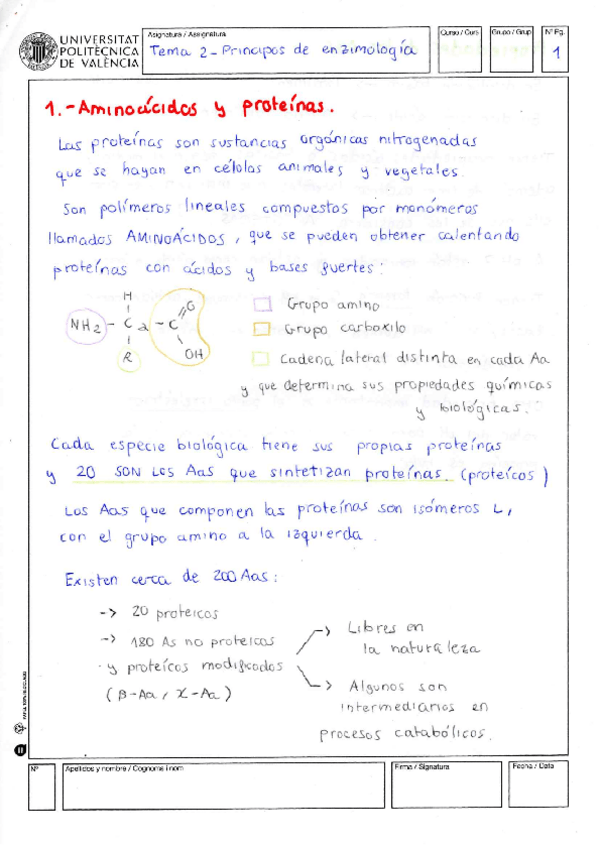 UNIVERSITAT
POLITÈCNICA
DE VALÈNCIA
Asignatura / Assignatura
Tema 2 - Principos de enzimología
Curso / Curs
Grupo / Grup
Nº Pg.
1
1.- Aminoácidos y proteínas.
Las proteínas son sustancias orgánicas nitrogenadas
que se hayan en células animales y vegetales.
Son polímeros lineales compuestos por monómeros
llamados AMINOÁCIDOS, que se pueden obtener calentando
proteínas con ácidos y bases fuertes:
H
O
NH2 - Ca - C
R
OH
Grupo amino
Grupo carboxilo
Cadena lateral distinta en cada Aa
y que determina sus propiedades químicas
y biológicas.
Cada especie biológica tiene sus propias proteínas
y 20 SON LOS Aas que sintetizan proteínas. (proteícos)
Los Aas que componen las proteínas son isómeros L,
con el grupo amino a la izquierda.
Existen cerca de 200 Aas:
-> 20 proteicos
-> 180 As no proteicos
y proteícos modificados
(β-Aa, γ-Aa)
Libres en
la naturaleza
Algunos son
intermediarios en
procesos catabólicos.
Nº
Apellidos y nombre / Cognoms i nom
Firma / Signatura
Fecha / Data